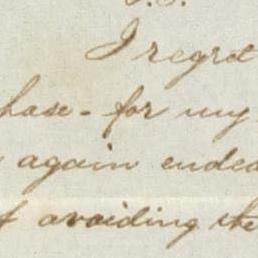 I regret
hase - for my
again endea
f avoiding the